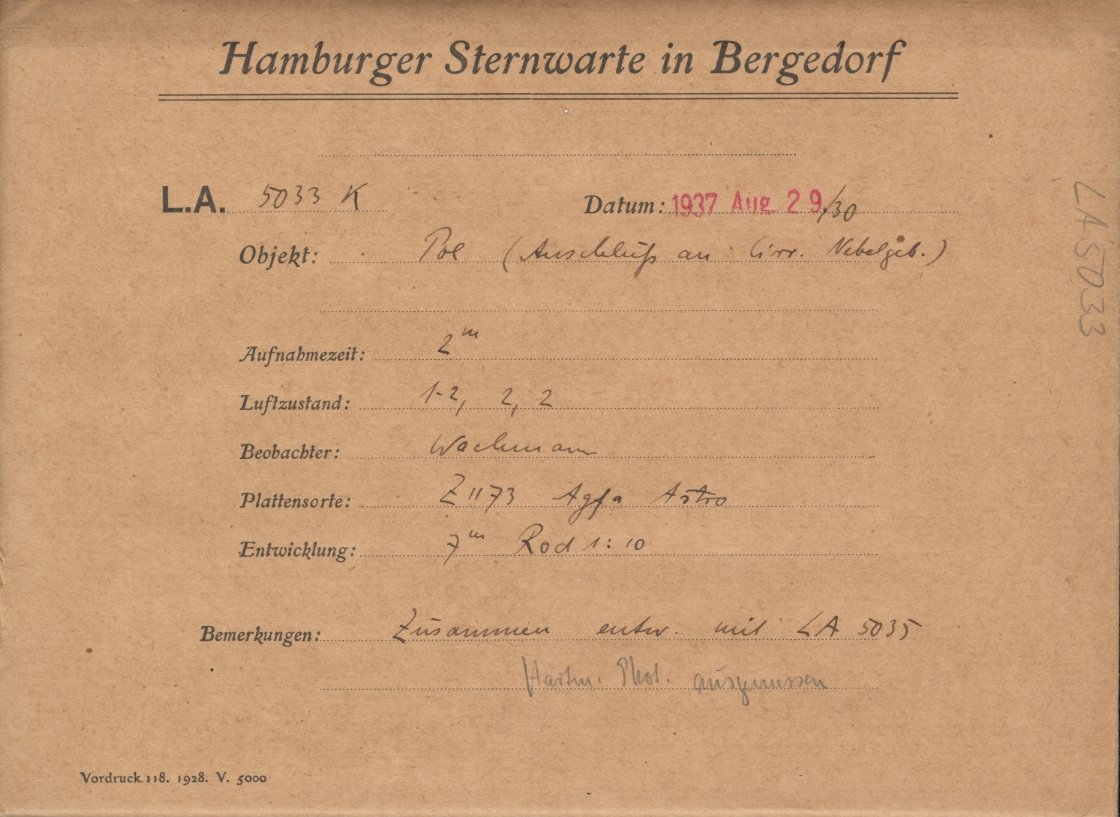 Hamburger Sternwarte in Bergedorf
L.A. 5033 K
Datum: 1937 Aug. 29./30
Objekt: Pol (Anschluß an Cirr. Nebelgeb.)
Aufnahmezeit: 2ᵐ
Luftzustand: 1-2, 2, 2
Beobachter: Wachmann
Plattensorte: Z1173 Agfa Astro
Entwicklung: 7ᵐ Rod 1:10
Bemerkungen: Zusammen entw. mit LA 5035
Hartm. Phot. ausgemessen
Vordruck 118. 1928. V. 5000
LA 5033